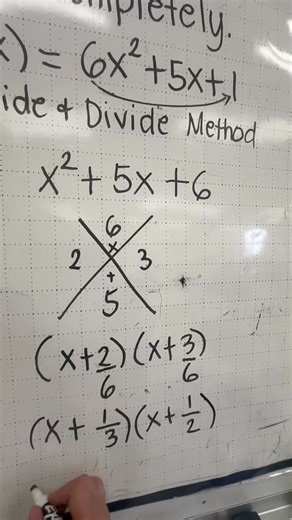 mpletely.
x) = 6x² + 5x + 1
ide & Divide Method
x² + 5x + 6
6
2 × 3
+
5
(x + 2/6)(x + 3/6)
(x + 1/3)(x + 1/2)